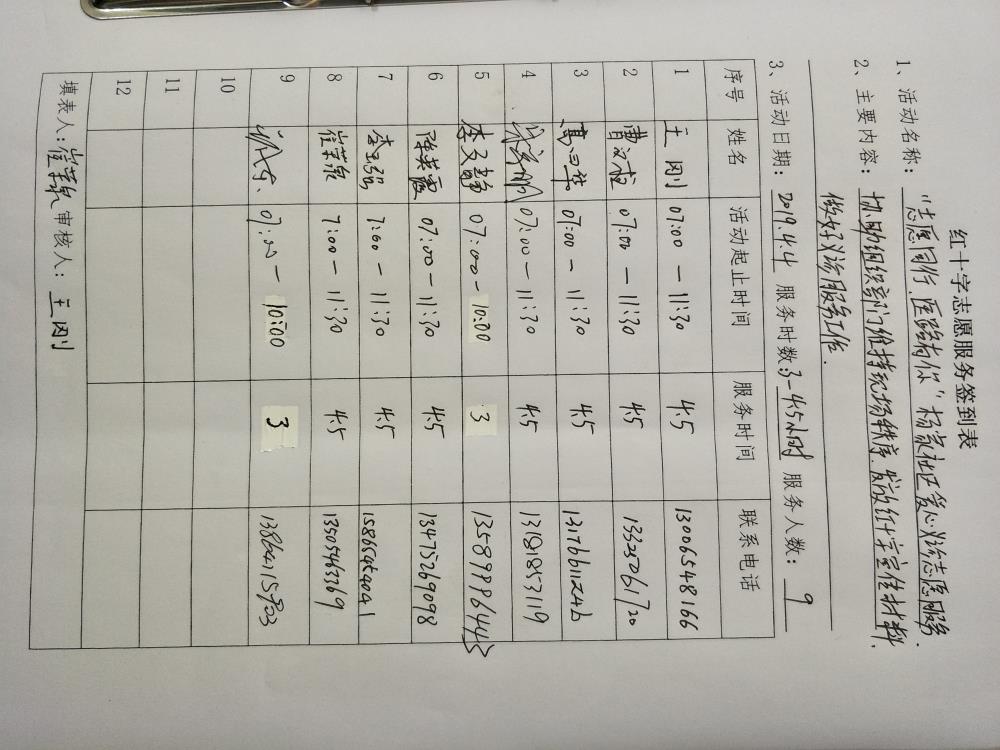 红十字志愿服务签到表
1、活动名称：“志愿同行，医路有你”杨家社区爱心义诊志愿服务.
2、主要内容：协助组织部门维持现场秩序.发放红十字宣传材料.
做好义诊服务工作.
3、活动日期：2019.4.4 服务时数3-4.5小时 服务人数：9
序号 姓名 活动起止时间 服务时间 联系电话
1 王刚 07:00-11:30 4.5 13006548166
2 07:00-11:30 4.5
3 07:00-11:30 4.5
4 07:00-11:30 4.5 13181853119
5 李文静 07:00-10:00 3 13589986443
6 陈英霞 07:00-11:30 4.5 13475269098
7 李玉强 7:00-11:30 4.5 15865454041
8 7:00-11:30 4.5 13505463369
9 07:00-10:00 3
10
11
12
填表人： 审核人：王刚